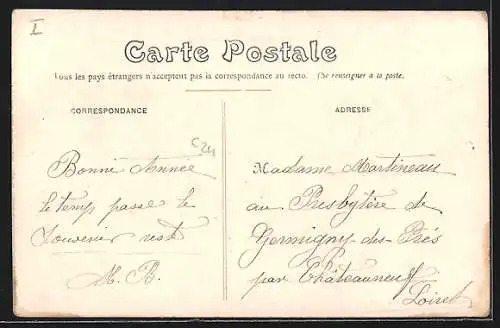 I
Carte Postale
Tous les pays étrangers n'acceptent pas la correspondance au recto. (Se renseigner à la poste.
CORRESPONDANCE
ADRESSE
C24
Bonne Année
le temp passe le
Souvenir rest
M. B.
Madame Martineau
au Presbytère de
Germigny-des-Prés
par Châteauneuf
Loiret